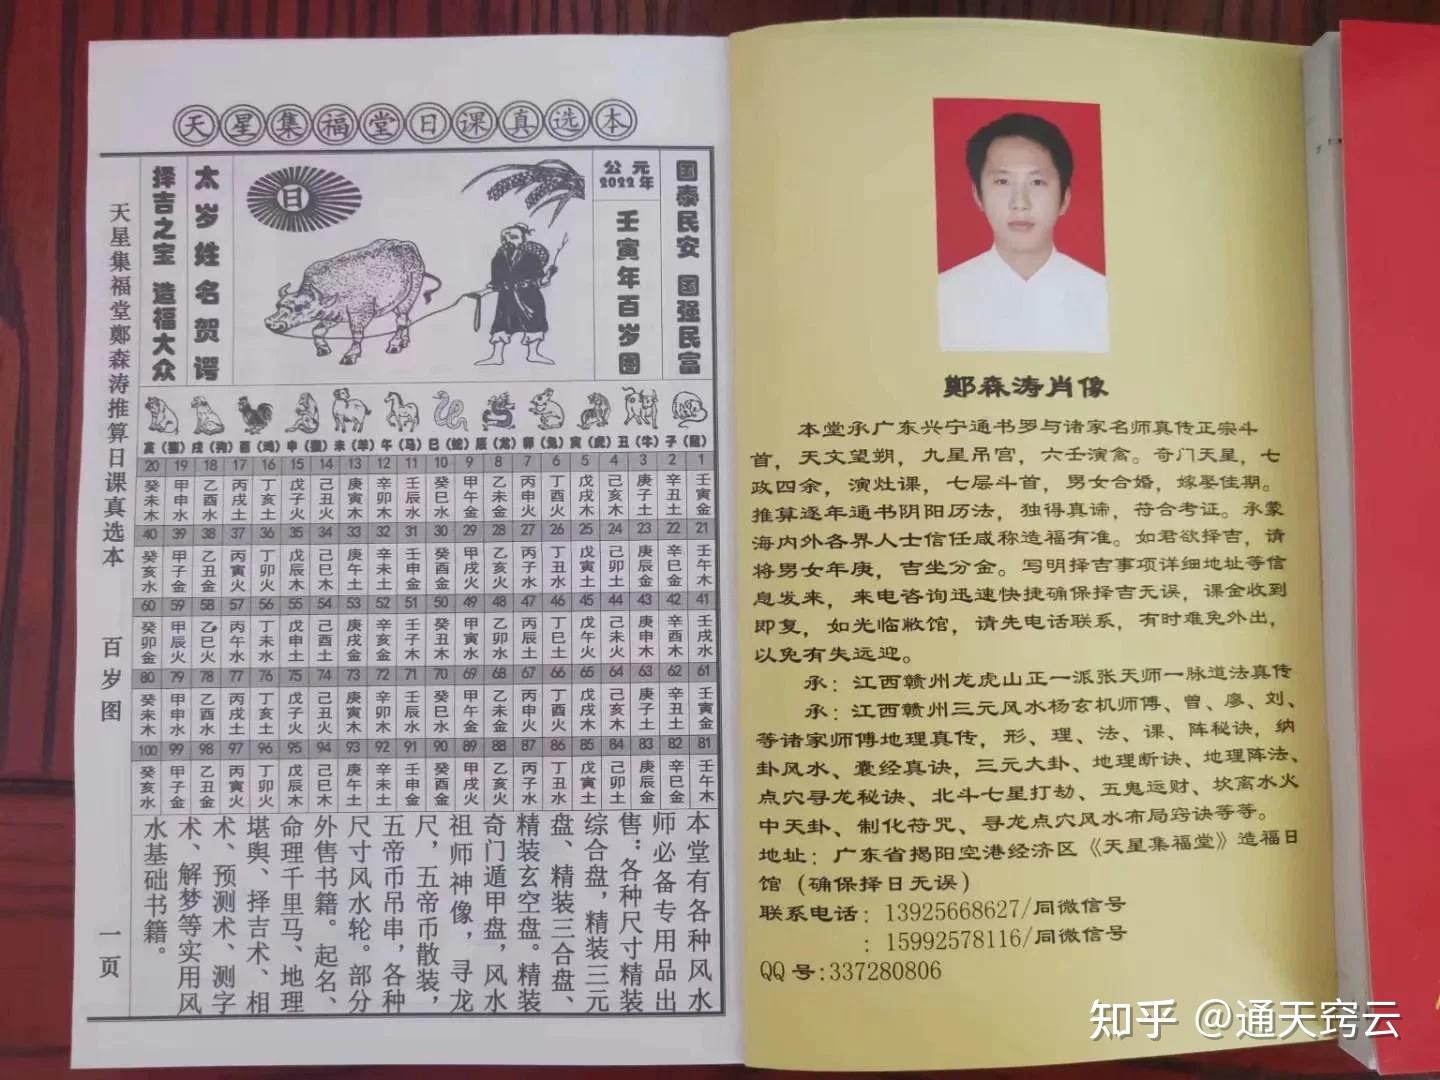 天星集福堂日课真选本
国泰民安 国强民富
公元
2022年
壬寅年百岁图
日
太岁姓名贺谔
择吉之宝 造福大众
天星集福堂鄭森涛推算日课真选本 百岁图 一页
亥（猪）戌（狗）酉（鸡）申（猴）未（羊）午（马）巳（蛇）辰（龙）卯（兔）寅（虎）丑（牛）子（鼠）
20 19 18 17 16 15 14 13 12 11 10 9 8 7 6 5 4 3 2 1
癸未木 甲申水 乙酉水 丙戌土 丁亥土 戊子火 己丑火 庚寅木 辛卯木 壬辰水 癸巳水 甲午金 乙未金 丙申火 丁酉火 戊戌木 己亥木 庚子土 辛丑土 壬寅金
40 39 38 37 36 35 34 33 32 31 30 29 28 27 26 25 24 23 22 21
癸亥水 甲子金 乙丑金 丙寅火 丁卯火 戊辰木 己巳木 庚午土 辛未土 壬申金 癸酉金 甲戌火 乙亥火 丙子水 丁丑水 戊寅土 己卯土 庚辰金 辛巳金 壬午木
60 59 58 57 56 55 54 53 52 51 50 49 48 47 46 45 44 43 42 41
癸卯金 甲辰火 乙巳火 丙午水 丁未水 戊申土 己酉土 庚戌金 辛亥金 壬子木 癸丑木 甲寅水 乙卯水 丙辰土 丁巳土 戊午火 己未火 庚申木 辛酉木 壬戌水
80 79 78 77 76 75 74 73 72 71 70 69 68 67 66 65 64 63 62 61
癸未木 甲申水 乙酉水 丙戌土 丁亥土 戊子火 己丑火 庚寅木 辛卯木 壬辰水 癸巳水 甲午金 乙未金 丙申火 丁酉火 戊戌木 己亥木 庚子土 辛丑土 壬寅金
100 99 98 97 96 95 94 93 92 91 90 89 88 87 86 85 84 83 82 81
癸亥水 甲子金 乙丑金 丙寅火 丁卯火 戊辰木 己巳木 庚午土 辛未土 壬申金 癸酉金 甲戌火 乙亥火 丙子水 丁丑水 戊寅土 己卯土 庚辰金 辛巳金 壬午木
本堂有各种风水
师必备专用品出
售：各种尺寸精装
综合盘，精装三元
盘、精装三合盘、
精装玄空盘。精装
奇门遁甲盘，风水
祖师神像，寻龙
尺，五帝币散装，
五帝币吊串，各种
尺寸风水轮。部分
外售书籍。起名、
命理千里马、地理
堪舆、择吉术、相
术、预测术、测字
术、解梦等实用风
水基础书籍。
鄭森涛肖像
本堂承广东兴宁通书罗与诸家名师真传正宗斗
首，天文望朔，九星吊宫，六壬演禽。奇门天星，七
政四余，演灶课，七层斗首，男女合婚，嫁娶佳期。
推算逐年通书阴阳历法，独得真谛，符合考证。承蒙
海内外各界人士信任咸称造福有准。如君欲择吉，请
将男女年庚，吉坐分金。写明择吉事项详细地址等信
息发来，来电咨询迅速快捷确保择吉无误，课金收到
即复，如光临敝馆，请先电话联系，有时难免外出，
以免有失远迎。
承：江西赣州龙虎山正一派张天师一脉道法真传
承：江西赣州三元风水杨玄机师傅、曾、廖、刘、
等诸家师傅地理真传，形、理、法、课、阵秘诀，纳
卦风水、囊经真诀，三元大卦、地理断诀、地理阵法、
点穴寻龙秘诀、北斗七星打劫、五鬼运财、坎离水火
中天卦、制化符咒、寻龙点穴风水布局窍诀等等。
地址：广东省揭阳空港经济区《天星集福堂》造福日
馆（确保择日无误）
联系电话：13925668627/同微信号
：15992578116/同微信号
QQ号:337280806
知乎 @通天窍云